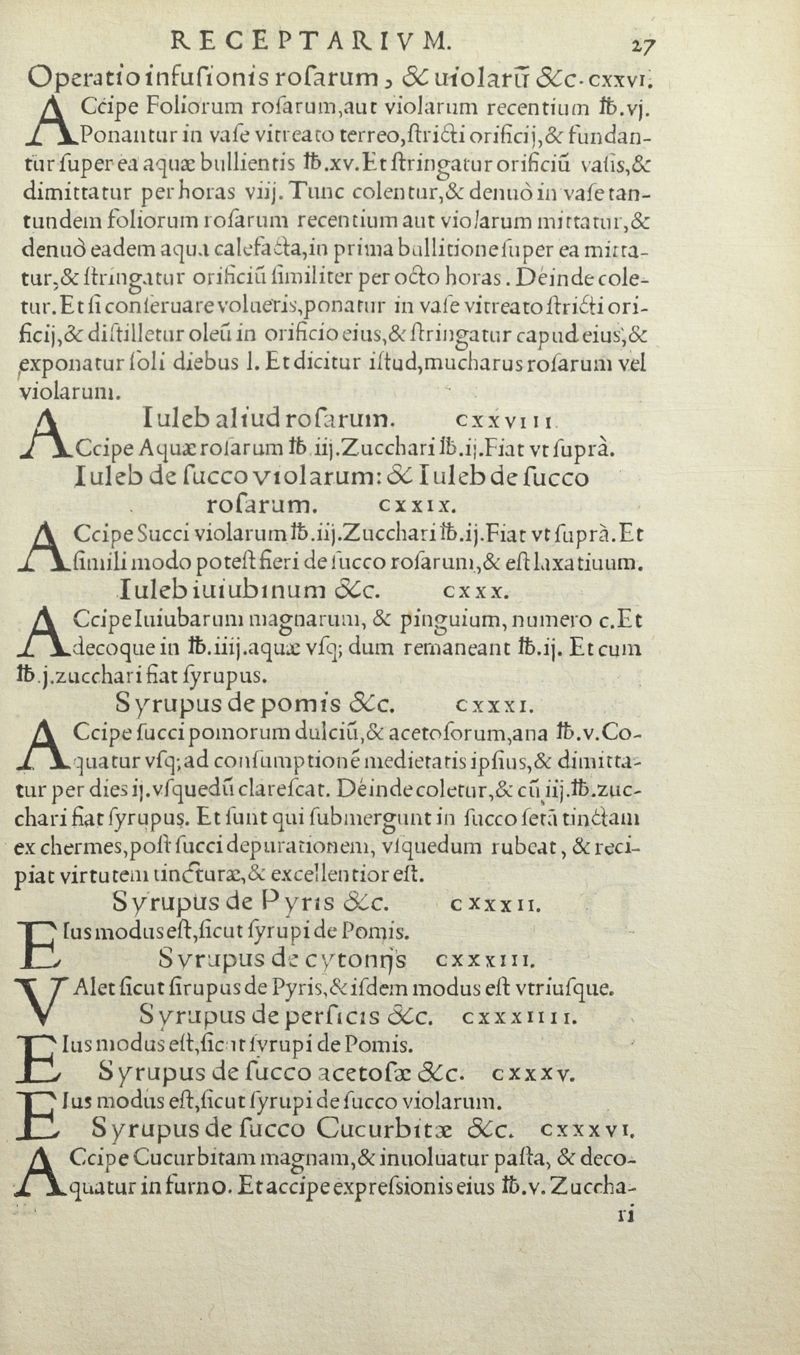 RECEPTARIVM. 27
Operatio infuſionis roſarum, & uiolarū &c. cxxvi.
ACcipe Foliorum roſarum,aut violarum recentium ℔.vj.
Ponantur in vaſe vitreato terreo,ſtricti orificij,& fundan-
tur ſuper ea aquæ bullientis ℔.xv.Et ſtringatur orificiū vaſis,&
dimittatur per horas viij. Tunc colentur,& denuò in vaſe tan-
tundem foliorum roſarum recentium aut violarum mittatur,&
denuò eadem aqua calefacta,in prima bullitione ſuper ea mitta-
tur,& ſtringatur orificiū ſimiliter per octo horas. Deinde cole-
tur. Et ſi conſeruare volueris,ponatur in vaſe vitreato ſtricti ori-
ficij,& diſtilletur oleū in orificio eius,& ſtringatur caput eius,&
exponatur ſoli diebus l. Et dicitur iſtud,mucharus roſarum vel
violarum.
Iuleb aliud roſarum. cxxviii.
ACcipe Aquæ roſarum ℔.iij.Zucchari ℔.ij.Fiat vt ſuprà.
Iuleb de ſucco violarum: & Iuleb de ſucco
roſarum. cxxix.
ACcipe Succi violarum ℔.iij.Zucchari ℔.ij.Fiat vt ſuprà.Et
ſimili modo poteſt fieri de ſucco roſarum,& eſt laxatiuum.
Iuleb iuiubinum &c. cxxx.
ACcipe Iuiubarum magnarum, & pinguium, numero c.Et
decoque in ℔.iiij.aquæ vſq; dum remaneant ℔.ij. Et cum
℔.j.zucchari fiat ſyrupus.
Syrupus de pomis &c. cxxxi.
ACcipe ſucci pomorum dulciū,& acetoſorum,ana ℔.v.Co-
quatur vſq;ad conſumptionē medietatis ipſius,& dimitta-
tur per dies ij.vſquedū clareſcat. Deinde coletur,& cū iij.℔.zuc-
chari fiat ſyrupus. Et ſunt qui ſubmergunt in ſucco ſetā tinctam
ex chermes,poſt ſucci depurationem, vſquedum rubeat, & reci-
piat virtutem tincturæ,& excellentior eſt.
Syrupus de Pyris &c. cxxxii.
EIus modus eſt,ſicut ſyrupi de Pomis.
Syrupus de cytonijs cxxxiii.
VAlet ſicut ſirupus de Pyris,& iſdem modus eſt vtriuſque.
Syrupus de perſicis &c. cxxxiiii.
EIus modus eſt,ſicut ſyrupi de Pomis.
Syrupus de ſucco acetoſæ &c. cxxxv.
EIus modus eſt,ſicut ſyrupi de ſucco violarum.
Syrupus de ſucco Cucurbitæ &c. cxxxvi.
ACcipe Cucurbitam magnam,& inuoluatur paſta, & deco-
quatur in furno. Et accipe expreſsionis eius ℔.v. Zuccha-
ri